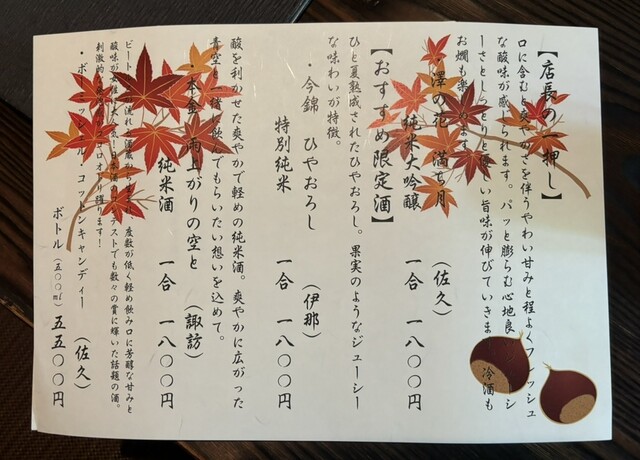 【店長の一押し】
口に含むと爽やかさを伴うやわい甘みと程よくフレッシュ
な酸味が感じられます。パッと膨らむ心地良 シ
ーさとしっとりと優しい旨味が伸びていきま 冷酒も
お燗も楽しめます
・澤の花 満ち月 (佐久)
純米大吟醸 一合 一八〇〇円
【おすすめ限定酒】
ひと夏熟成されたひやおろし。果実のようなジューシー
な味わいが特徴。
・今錦 ひやおろし (伊那)
特別純米 一合 一八〇〇円
酸を利かせた爽やかで軽めの純米酒。爽やかに広がった
青空と一緒に飲んでもらいたい想いを込めて。
・本金 雨上がりの空と (諏訪)
純米酒 一合 一八〇〇円
ビート 流れる酒蔵 度数が低く軽め飲み口に芳醇な甘みと
酸味が 大人気!日本酒 テストでも数々の賞に輝いた話題の酒。
刺激的 踊ります!
・ボー・ シェル コットンキャンディー (佐久)
ボトル(五〇〇ml) 五五〇〇円